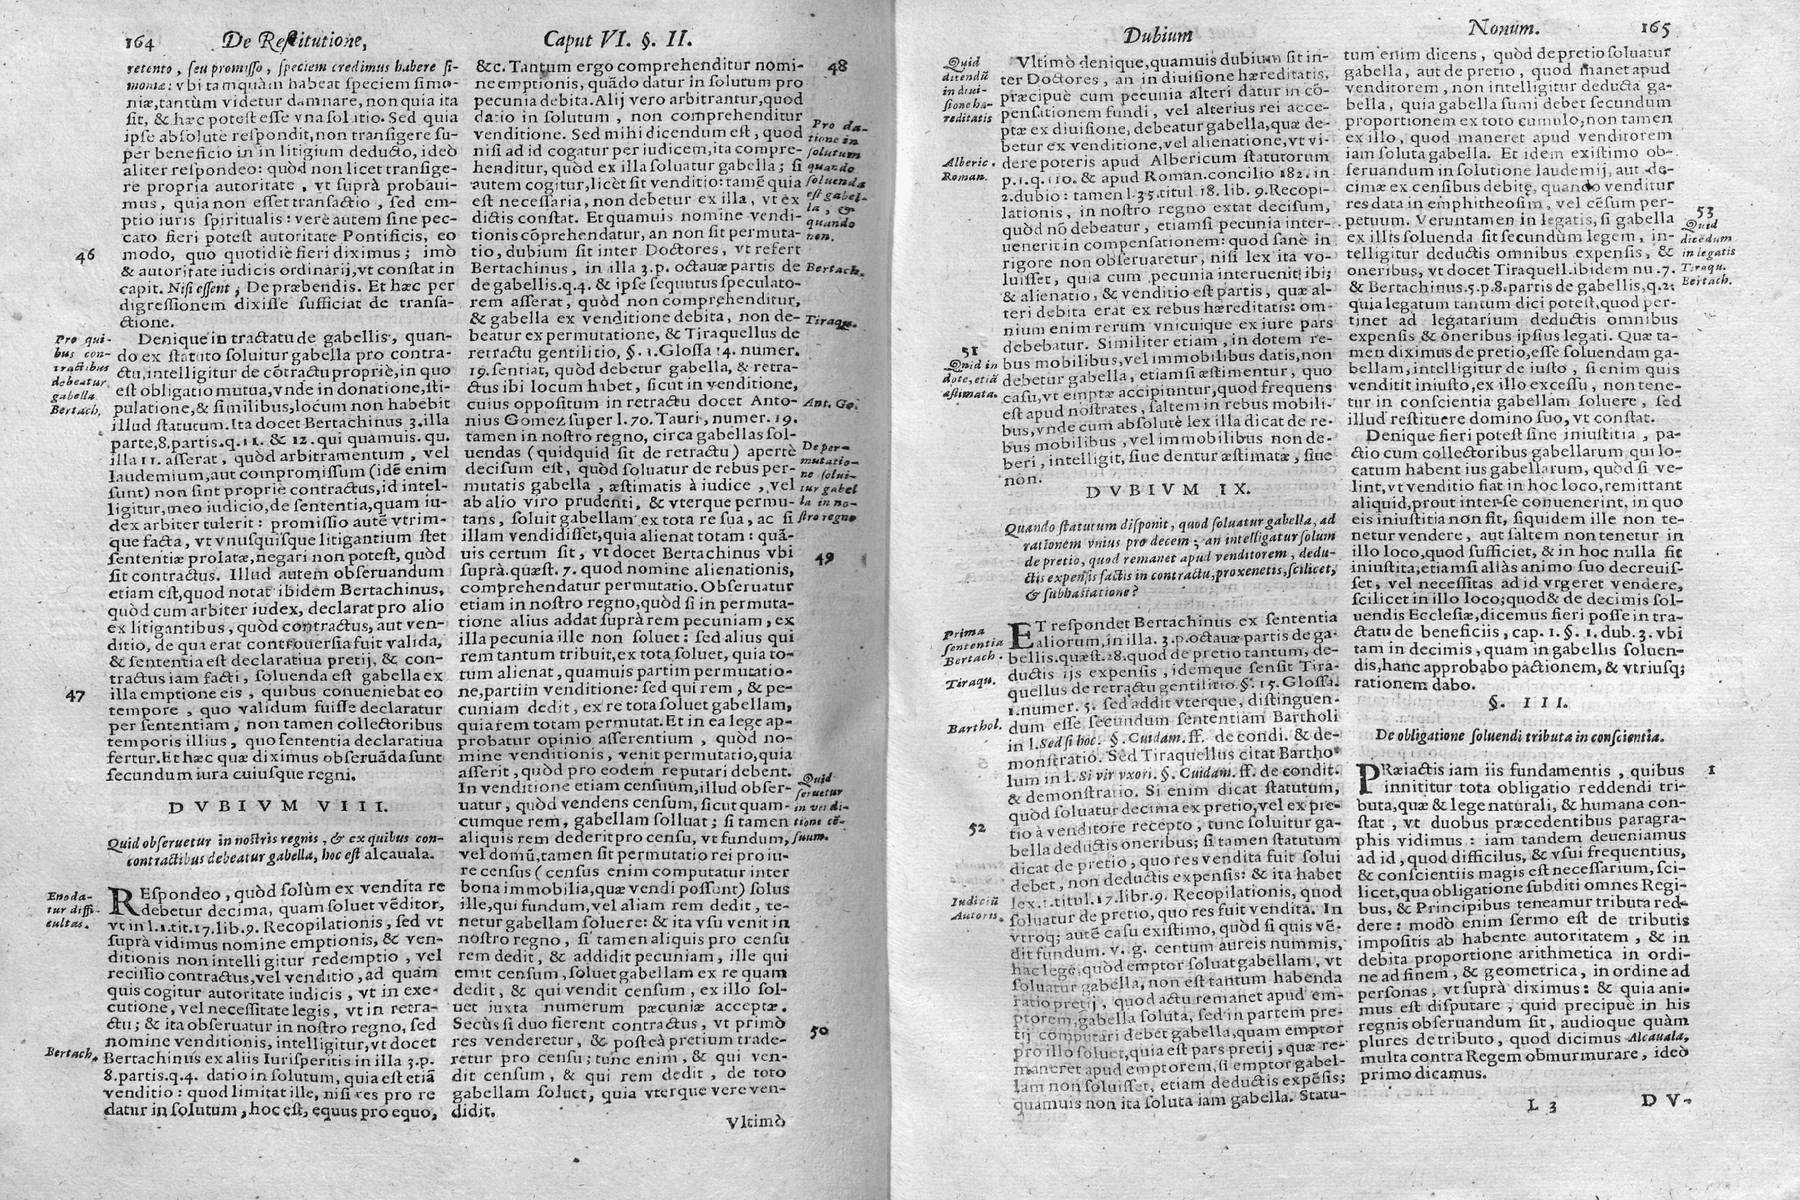 164 De Restitutione, Caput VI. §. II.
retento, seu promisso, speciem credimus habere si-
moniæ: vbi tamquàm habeat speciem simo-
niæ, tantùm videtur damnare, non quia ita
sit, & hæc potest esse vna solutio. Sed quia
ipse absolutè respondit, non transigere su-
per beneficio in in litigium deducto, ideò
aliter respondeo: quòd non licet transige-
re propria autoritate, vt suprà probaui-
mus, quia non esset transactio, sed em-
ptio iuris spiritualis: verè autem sine pec-
cato fieri potest autoritate Pontificis, eo
46
modo, quo quotidiè fieri diximus; imò
& autoritate iudicis ordinarij, vt constat in
capit. Nisi essent, De præbendis. Et hæc per
digressionem dixisse sufficiat de transa-
ctione.
Pro qui-
bus con-
tractibus
debeatur
gabella
Bertach.
Denique in tractatu de gabellis, quan-
do ex statuto soluitur gabella pro contra-
ctu, intelligitur de cõtractu propriè, in quo
est obligatio mutua, vnde in donatione, sti-
pulatione, & similibus, locum non habebit
illud statutum. Ita docet Bertachinus 3. illa
parte, 8. partis. q. 11. & 12. qui quamuis. qu.
illa 11. asserat, quòd arbitramentum, vel
laudemium, aut compromissum (idẽ enim
sunt) non sint propriè contractus, id intel-
ligitur, meo iudicio, de sententia, quam iu-
dex arbiter tulerit: promissio autẽ vtrim-
que facta, vt vnusquisque litigantium stet
sententiæ prolatæ, negari non potest, quòd
sit contractus. Illud autem obseruandum
etiam est, quod notat ibidem Bertachinus,
quòd cum arbiter iudex, declarat pro alio
ex litigantibus, quòd contractus, aut ven-
ditio, de qua erat controuersia fuit valida,
& sententia est declaratiua pretij, & con-
tractus iam facti, soluenda est gabella ex
47
illa emptione eis, quibus conueniebat eo
tempore, quo validum fuisse declaratur
per sententiam, non tamen collectoribus
temporis illius, quo sententia declaratiua
fertur. Et hæc quæ diximus obseruãda sunt
secundum iura cuiusque regni.
DVBIVM VIII.
Quid obseruetur in nostris regnis, & ex quibus con-
contractibus debeatur gabella, hoc est alcauala.
Enoda-
tur diffi-
cultas.
REspondeo, quòd solùm ex vendita re
debetur decima, quam soluet vẽditor,
vt in l. 1. tit. 17. lib. 9. Recopilationis, sed vt
suprà vidimus nomine emptionis, & ven-
ditionis non intelligitur redemptio, vel
recissio contractus, vel venditio, ad quàm
quis cogitur autoritate iudicis, vt in exe-
cutione, vel necessitate legis, vt in retra-
ctu; & ita obseruatur in nostro regno, sed
nomine venditionis, intelligitur, vt docet
Bertach.
Bertachinus ex aliis Iurisperitis in illa 3. p.
8. partis. q. 4. datio in solutum, quia est etiã
venditio: quod limitat ille, nisi res pro re
datur in solutum, hoc est, equus pro equo,
&c. Tantum ergo comprehenditur nomi-
ne emptionis, quãdo datur in solutum pro
pecunia debita. Alij vero arbitrantur, quod
datio in solutum, non comprehenditur
venditione. Sed mihi dicendum est, quod
nisi ad id cogatur per iudicem, ita compre-
henditur, quòd ex illa soluatur gabella; si
autem cogitur, licèt sit venditio: tamẽ quia
est necessaria, non debetur ex illa, vt ex
dictis constat. Et quamuis nomine vendi-
tionis cõprehendatur, an non sit permuta-
tio, dubium sit inter Doctores, vt refert
Bertachinus, in illa 3. p. octauæ partis de
de gabellis. q. 4. & ipse sequutus speculato-
rem asserat, quòd non comprehenditur,
& gabella ex venditione debita, non de-
beatur ex permutatione, & Tiraquellus de
retractu gentilitio, §. 1. Glossa 14. numer.
19. sentiat, quòd debetur gabella, & retra-
ctus ibi locum habet, sicut in venditione,
cuius oppositum in retractu docet Anto-
nius Gomez super l. 70. Tauri, numer. 19.
tamen in nostro regno, circa gabellas sol-
uendas (quidquid sit de retractu) apertè
decisum est, quòd soluatur de rebus per-
mutatis gabella, æstimatis à iudice, vel
ab alio viro prudenti, & vterque permu-
tans, soluit gabellam ex tota re sua, ac si
illam vendidisset, quia alienat totam: quã-
uis certum sit, vt docet Bertachinus vbi
suprà. quæst. 7. quod nomine alienationis,
comprehendatur permutatio. Obseruatur
etiam in nostro regno, quòd si in permuta-
tione alius addat suprà rem pecuniam, ex
illa pecunia ille non soluet: sed alius qui
rem tantum tribuit, ex tota soluet, quia to-
tum alienat, quamuis partim permutatio-
ne, partim venditione: sed qui rem, & pe-
cuniam dedit, ex re tota soluet gabellam,
quia rem totam permutat. Et in ea lege ap-
probatur opinio asserentium, quòd no-
mine venditionis, venit permutatio, quia
asserit, quòd pro eodem reputari debent.
In venditione etiam censuum, illud obser-
uatur, quòd vendens censum, sicut quam-
cumque rem, gabellam solluat; si tamen
aliquis rem dederit pro censu, vt fundum,
vel domũ, tamen sit permutatio rei pro iu-
re census (census enim computatur inter
bona immobilia, quæ vendi possunt) solus
ille, qui fundum, vel aliam rem dedit, te-
netur gabellam soluere: & ita vsu venit in
nostro regno, si tamen aliquis pro censu
rem dedit, & addidit pecuniam, ille qui
emit censum, soluet gabellam ex re quam
dedit, & qui vendit censum, ex illo sol-
uet iuxta numerum pæcuniæ acceptæ.
Secùs si duo fierent contractus, vt primò
res venderetur, & posteà pretium trade-
retur pro censu; tunc enim, & qui ven-
dit censum, & qui rem dedit, de toto
gabellam soluet, quia vterque vere ven-
didit.
Vltimò
48
Pro da-
tione in
solutum
quando
soluenda
est gabel-
la, &
quando
non.
Bertach.
Tiraqu.
Ant. Go.
De per-
mutatio-
ne solui-
tur gabel
la in no-
stro regno
49
Quid
seruetur
in vendi-
tione cẽ-
suum.
50
Dubium Nonum. 165
Quid
dicendũ
in diui-
sione hæ-
reditatis
Vltimò denique, quamuis dubium sit in-
ter Doctores, an in diuisione hæreditatis,
præcipuè cum pecunia alteri datur in cõ-
pensationem fundi, vel alterius rei acce-
ptæ ex diuisione, debeatur gabella, quæ de-
betur ex venditione, vel alienatione, vt vi-
Alberic.
Roman.
dere poteris apud Albericum statutorum
p. 1. q. 110. & apud Roman. concilio 182. in
2. dubio: tamen l. 35. titul. 18. lib. 9. Recopi-
lationis, in nostro regno extat decisum,
quòd nõ debeatur, etiamsi pecunia inter-
uenerit in compensationem: quod sanè in
rigore non obseruaretur, nisi lex ita vo-
luisset, quia cum pecunia interuenit: ibi;
& alienatio, & venditio est partis, quæ al-
teri debita erat ex rebus hæreditatis: om-
nium enim rerum vnicuique ex iure pars
debebatur. Similiter etiam, in dotem re-
51
Quid in
dote, etiã
æstimata.
bus mobilibus, vel immobilibus datis, non
debetur gabella, etiamsi æstimentur, quo
casu, vt emptæ accipiuntur, quod frequens
est apud nostrates, saltem in rebus mobili-
bus, vnde cum absolutè lex illa dicat de re-
bus mobilibus, vel immobilibus non de-
beri, intelligit, siue dentur æstimatæ, siue
non.
DVBIVM IX.
Quando statutum disponit, quod soluatur gabella, ad
rationem vnius pro decem; an intelligatur solum
de pretio, quod remanet apud venditorem, dedu-
ctis expensis factis in contractu, proxenetis, scilicet,
& subhastatione?
Prima
sententia
Bertach.
Tiraqu.
Barthol.
ET respondet Bertachinus ex sententia
aliorum, in illa. 3. p. octauæ partis de ga-
bellis. quæst. 28. quod de pretio tantum, de-
ductis ijs expensis, idemque sensit Tira-
quellus de retractu gentilitio §. 15. Glossa.
1. numer. 5. sed addit vterque, distinguen-
dum esse secundum sententiam Bartholi
in l. Sed si hoc. §. Cuidam. ff. de condi. & de-
monstratio. Sed Tiraquellus citat Bartho-
lum in l. Si vir vxori. §. Cuidam. ff. de condit.
& demonstratio. Si enim dicat statutum,
quòd soluatur decima ex pretio, vel ex pre-
52
tio à venditore recepto, tunc soluitur ga-
bella deductis oneribus; si tamen statutum
dicat de pretio, quo res vendita fuit solui
debet, non deductis expensis: & ita habet
lex. 1. titul. 17. libr. 9. Recopilationis, quod
Iudiciũ
Autoris.
soluatur de pretio, quo res fuit vendita. In
vtroq; autẽ casu existimo, quòd si quis vẽ-
dit fundum. v. g. centum aureis nummis,
hac lege, quòd emptor soluat gabellam, vt
soluatur gabella, non est tantum habenda
ratio pretij, quod actu remanet apud em-
ptorem, gabella soluta, sed in partem pre-
tij computari debet gabella, quam emptor
pro illo soluet, quia est pars pretij, quæ re-
maneret apud emptorem, si emptor gabel-
lam non soluisset, etiam deductis expẽsis;
quamuis non ita soluta iam gabella. Statu-
tum enim dicens, quòd de pretio soluatur
gabella, aut de pretio, quod manet apud
venditorem, non intelligitur deducta ga-
bella, quia gabella sumi debet secundum
proportionem ex toto cumulo, non tamen
ex illo, quod maneret apud venditorem
iam soluta gabella. Et idem existimo ob-
seruandum in solutione laudemij, aut de-
cimæ ex censibus debitę, quando venditur
res data in emphitheosim, vel cẽsum per-
petuum. Veruntamen in legatis, si gabella
ex illis soluenda sit secundùm legem, in-
telligitur deductis omnibus expensis, &
oneribus, vt docet Tiraquell. ibidem nu. 7.
& Bertachinus. 5. p. 8. partis de gabellis, q. 2:
quia legatum tantum dici potest, quod per-
tinet ad legatarium deductis omnibus
expensis & oneribus ipsius legati. Quæ ta-
men diximus de pretio, esse soluendam ga-
bellam, intelligitur de iusto, si enim quis
venditit iniusto, ex illo excessu, non tene-
tur in conscientia gabellam soluere, sed
illud restituere domino suo, vt constat.
53
Quid
dicẽdum
in legatis
Tiraqu.
Bertach.
Denique fieri potest sine iniustitia, pa-
ctio cum collectoribus gabellarum qui lo-
catum habent ius gabellarum, quòd si ve-
lint, vt venditio fiat in hoc loco, remittant
aliquid, prout inter se conuenerint, in quo
eis iniustitia non fit, siquidem ille non te-
netur vendere, aut saltem non tenetur in
illo loco, quod sufficiet, & in hoc nulla sit
iniustitia, etiamsi aliàs animo suo decreuis-
set, vel necessitas ad id vrgeret vendere,
scilicet in illo loco; quod & de decimis sol-
uendis Ecclesiæ, dicemus fieri posse in tra-
ctatu de beneficiis, cap. 1. §. 1. dub. 3. vbi
tam in decimis, quam in gabellis soluen-
dis, hanc approbabo pactionem, & vtriusq;
rationem dabo.
§. III.
De obligatione soluendi tributa in conscientia.
PRæiactis iam iis fundamentis, quibus
1
innititur tota obligatio reddendi tri-
buta, quæ & lege naturali, & humana con-
stat, vt duobus præcedentibus paragra-
phis vidimus: iam tandem deueniamus
ad id, quod difficilus, & vsui frequentius,
& conscientiis magis est necessarium, sci-
licet, qua obligatione subditi omnes Regi-
bus, & Principibus teneamur tributa red-
dere: modò enim sermo est de tributis
impositis ab habente autoritatem, & in
debita proportione arithmetica in ordi-
ne ad finem, & geometrica, in ordine ad
personas, vt suprà diximus: & quia ani-
mus est disputare, quid precipuè in his
regnis obseruandum sit, audioque quàm
plures de tributo, quod dicimus Alcauala,
multa contra Regem obmurmurare, ideò
primo dicamus.
L 3 DV-